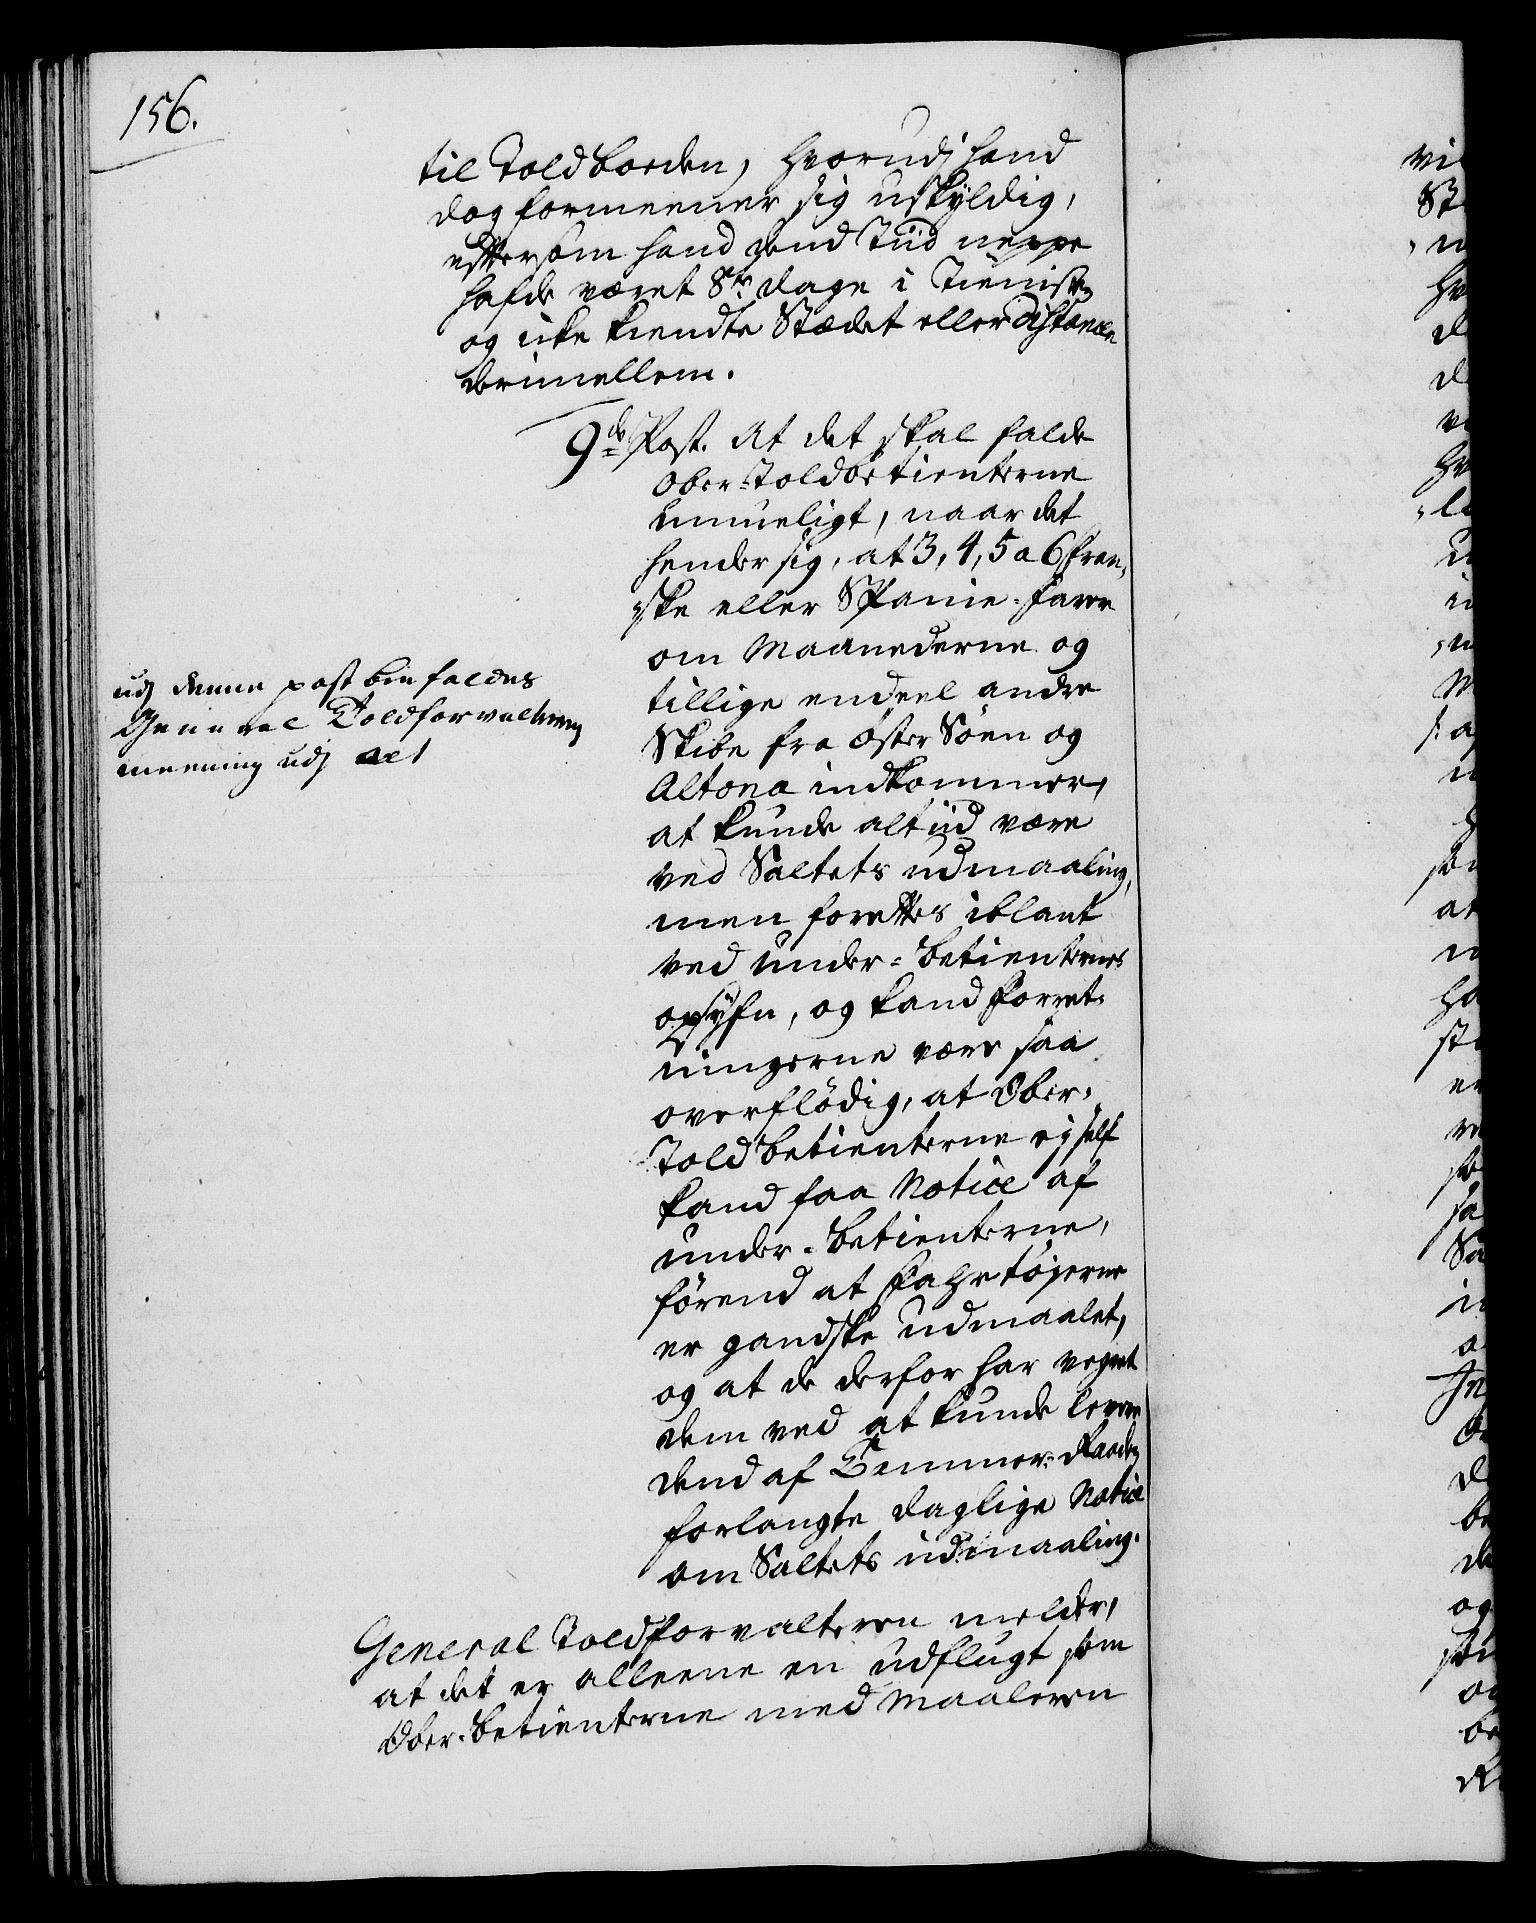 156.
til Toldboeden, hvorudj hand
dog formeener sig uskyldig,
eftersom hand dend Tiid neppe
hafde været 8te dage i Tienisten
og icke kiendte Stædet eller distancen
derimellem.
9de Post. At det skal falde
Ober-Toldbetienterne
umueligt, naar det
hender sig, at 3, 4, 5 a 6 Fran-
ske eller Spanie-farere
om Maanederne og
tillige endeel andre
Skibe fra Øster Søen og
Altona indkommer,
at kunde altiid være
ved Saltets udmaaling,
men forettes iblant
ved under-betienternes
opsyn, og kand forret-
ningerne være saa
overflødig, at Ober-
Toldbetienterne ej self
kand faa Notice af
under-betienterne,
førend at fahrtøjerne
er gandske udmaalet,
og at de derfor har vegret
dem ved at kunde levere
dend af Cammer-Raaden
forlangte daglige Notice
om Saltets udmaaling.
udj denne post biefaldes
General Toldforvalterens
meening udj alt
General Toldforvalteren melder,
at det er alleene en udflugt som
Ober-betienterne med Maaleren